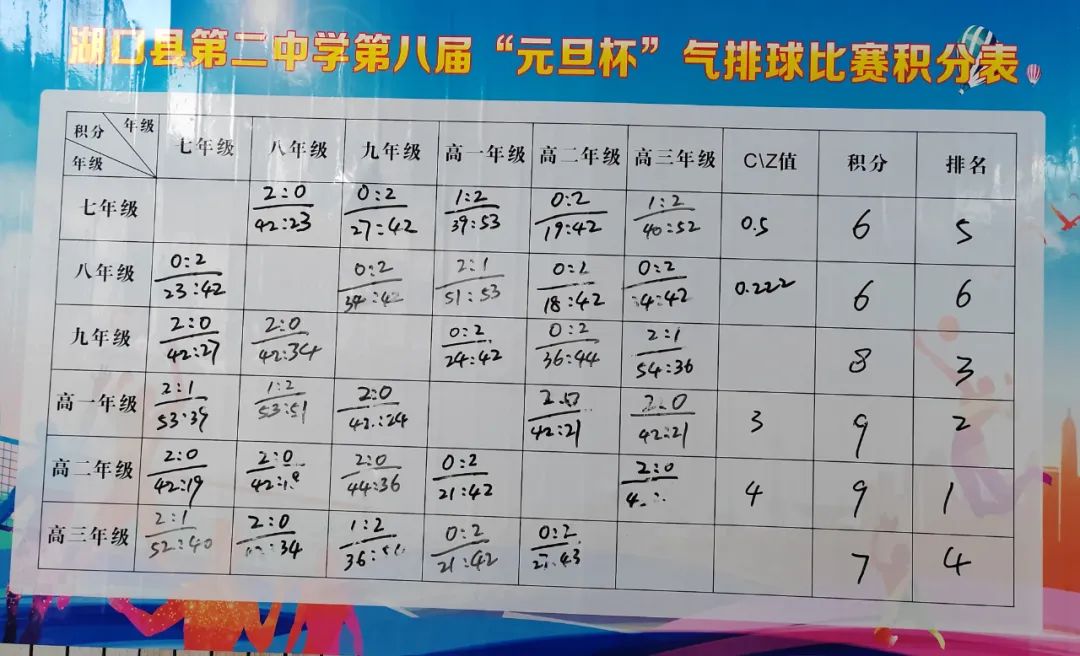 湖口县第二中学第八届“元旦杯”气排球比赛积分表
积分 年级 年级 七年级 八年级 九年级 高一年级 高二年级 高三年级 C\Z值 积分 排名
七年级 2:0 0:2 1:2 0:2 1:2 0.5 6 5
42:23 27:42 39:53 19:42 40:52
八年级 0:2 0:2 2:1 0:2 0:2 0.222 6 6
23:42 34:42 51:53 18:42 34:42
九年级 2:0 2:0 0:2 0:2 2:1 8 3
42:27 42:34 24:42 36:44 54:36
高一年级 2:1 1:2 2:0 2:0 2:0 3 9 2
53:39 53:51 42:24 42:21 42:21
高二年级 2:0 2:0 2:0 0:2 2:0 4 9 1
42:19 42:18 44:36 21:42
高三年级 2:1 2:0 1:2 0:2 0:2 7 4
52:40 42:34 36:54 21:42 21:43